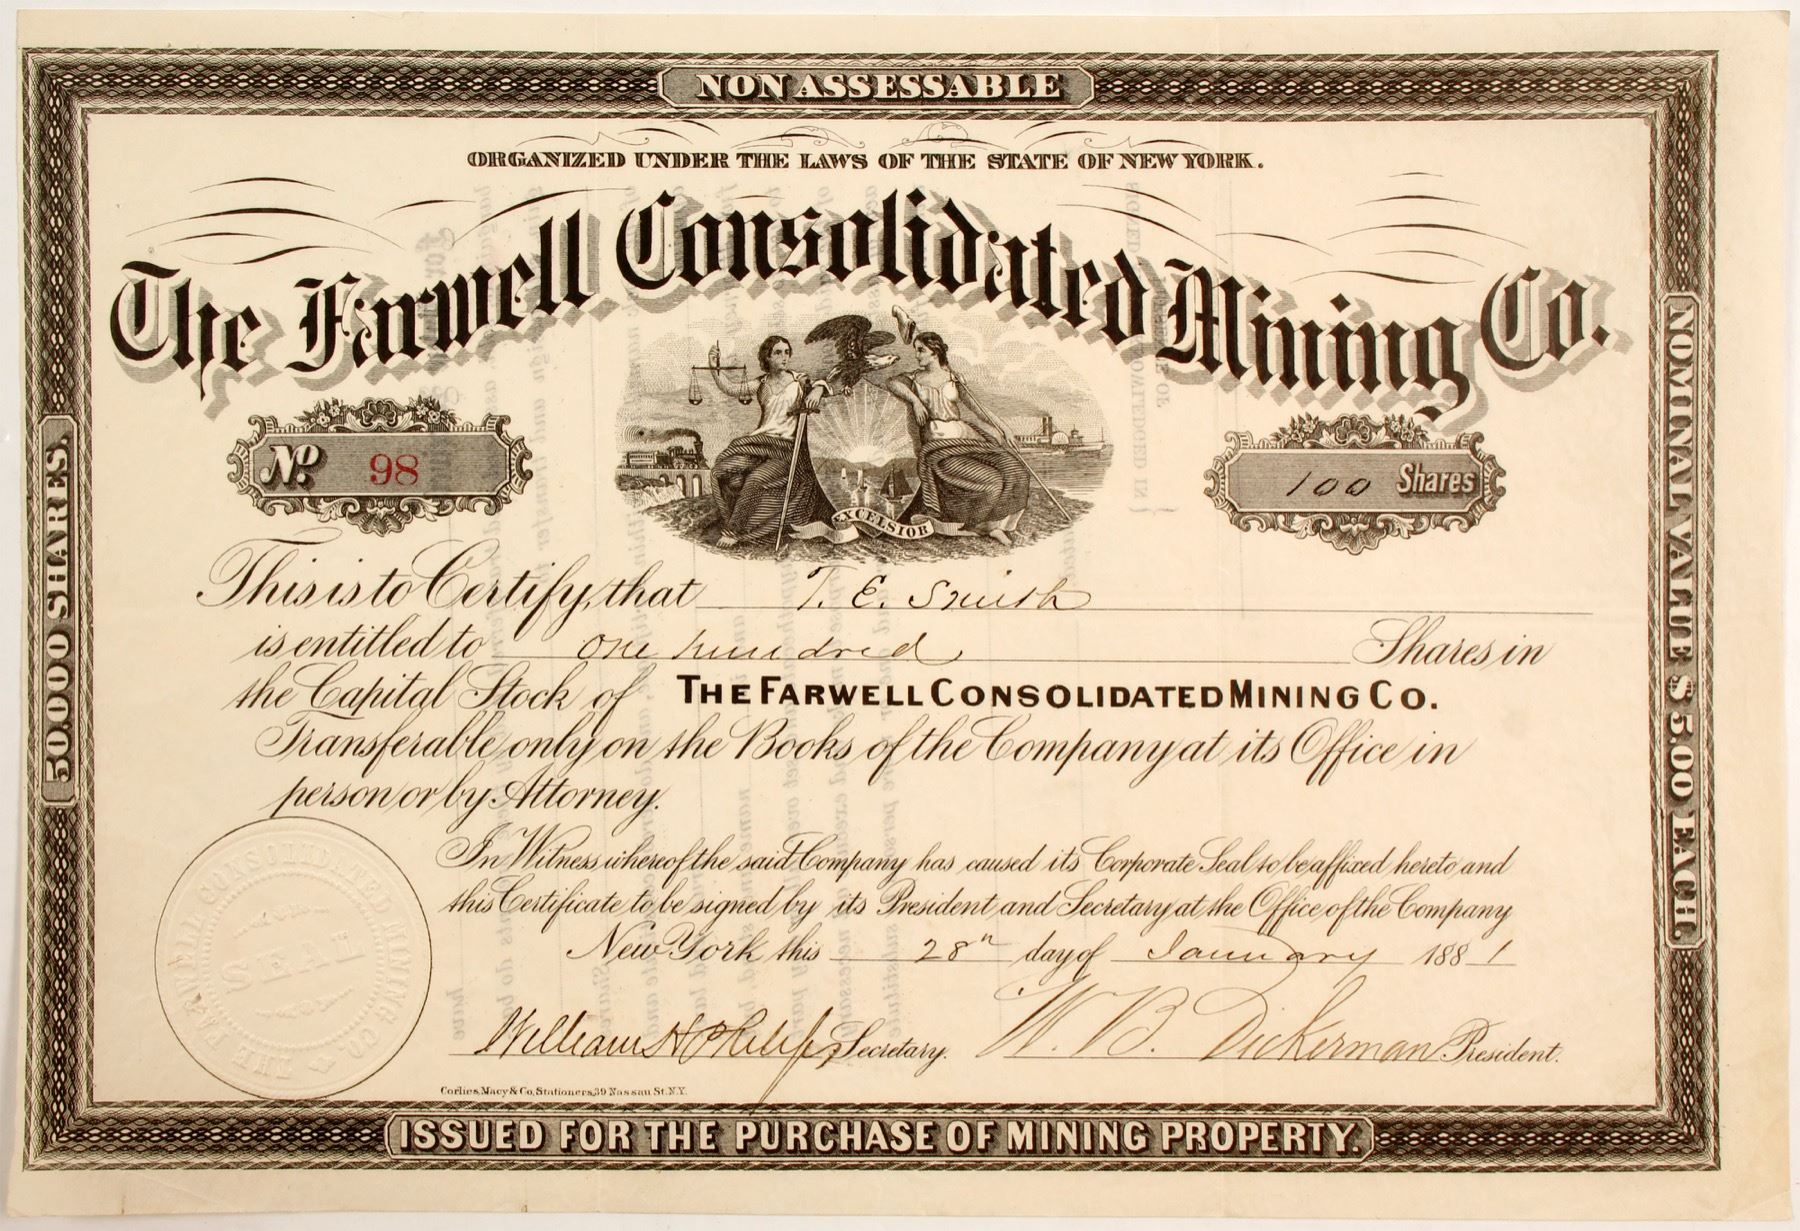 NON ASSESSABLE
ORGANIZED UNDER THE LAWS OF THE STATE OF NEW YORK.
The Farwell Consolidated Mining Co.
No. 98
EXCELSIOR
100 Shares
50.000 SHARES.
NOMINAL VALUE $5.00 EACH.
This is to Certify, that T. E. Smith
is entitled to one hundred Shares in
the Capital Stock of THE FARWELL CONSOLIDATED MINING CO.
Transferable only on the Books of the Company at its Office in
person or by Attorney.
In Witness whereof the said Company has caused its Corporate Seal to be affixed hereto and
this Certificate to be signed by its President and Secretary at the Office of the Company
New York this 28th day of January 1881
THE FARWELL CONSOLIDATED MINING CO.
SEAL
William H Philips Secretary.
W. B. Dickerman President.
Corlies, Macy & Co, Stationers, 39 Nassau St. N.Y.
ISSUED FOR THE PURCHASE OF MINING PROPERTY.